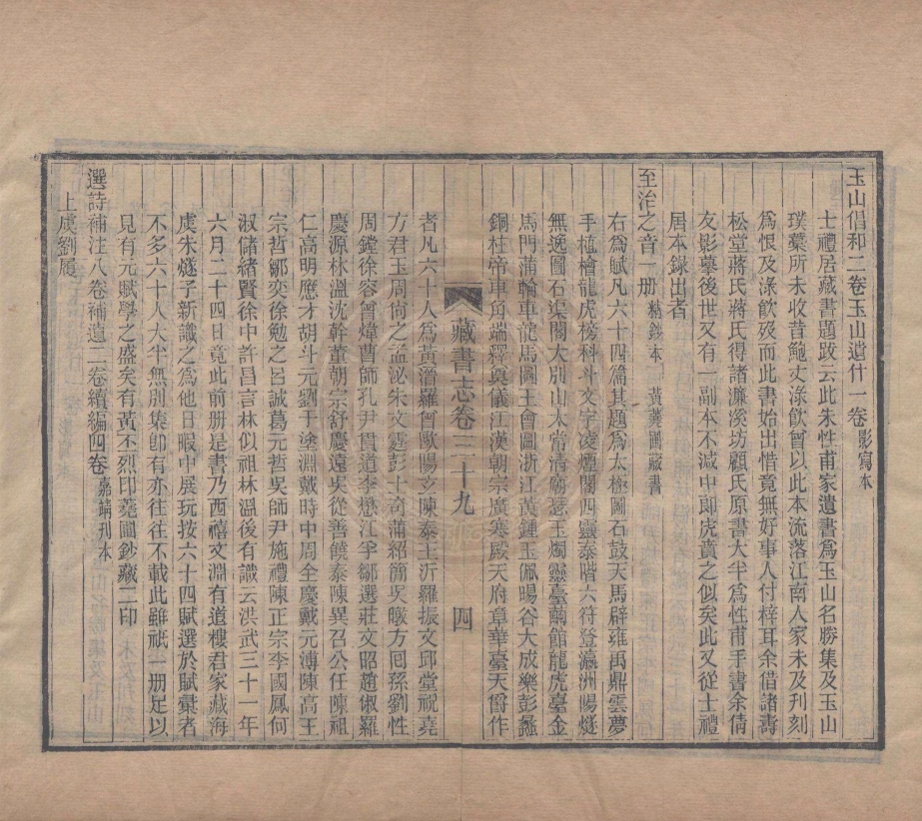 玉山倡和二卷玉山遺什一卷影寫本
士禮居藏書題跋云此朱性甫家遺書爲玉山名勝集及玉山
璞藁所未收昔鮑丈淥飲曾以此本流落江南人家未及刊刻
爲恨及淥飲歿而此書始出惜竟無好事人付梓耳余借諸壽
松堂蔣氏蔣氏得諸濂溪坊顧氏原書大半爲性甫手書余倩
友影摹後世又有一副本不減中郎虎賁之似矣此又從士禮
居本錄出者
至治之音一册精鈔本 黃蕘圃藏書
右爲賦凡六十四篇其題爲太極圖石鼓天馬辟雍禹鼎雲夢
手植檜龍虎榜科斗文字凌煙閣四靈泰階六符登瀛洲陽燧
無逸圖石渠閣大別山太常淸廟瑟玉燭靈臺繭館龍虎臺金
馬門蒲輪車龍馬圖王會圖浙江黃鍾玉佩暘谷大成樂彭蠡
銅柱帝車角端釋奠儀江漢朝宗廣寒殿天府章華臺天爵作
藏書志卷三十九 四
者凡六十人爲黃溍羅曾歐陽玄陳泰王沂羅振文邱堂祝堯
方君玉周尙之孟泌朱文霆彭士奇蒲紹簡吳暾方囘孫劉性
周鏜徐容曾煒曹師孔尹貫道李懋江孚鄒選莊文昭趙俶羅
慶源林溫沈幹董朝宗舒慶遠吳從善饒泰陳異召公任陳祖
仁高明應才胡斗元劉于塗淵戴時中周全慶戴元溥陳高王
宗哲鄒奕徐勉之呂誠葛元哲吳師尹施禮陳正宗李國鳳何
淑儲緒賢徐中許昌言林似祖林溫後有識云洪武三十一年
六月二十四日竟此前册是書乃西禧文淵有道樓君家藏海
虞朱燧子新識之爲他日暇中展玩按六十四賦選於賦彙者
不多六十人大半無別集卽有亦往往不載此雖祇一册足以
見有元賦學之盛矣有黃丕烈印蕘圃鈔藏二印
選詩補注八卷補遺二卷續編四卷嘉靖刊本
上虞劉履